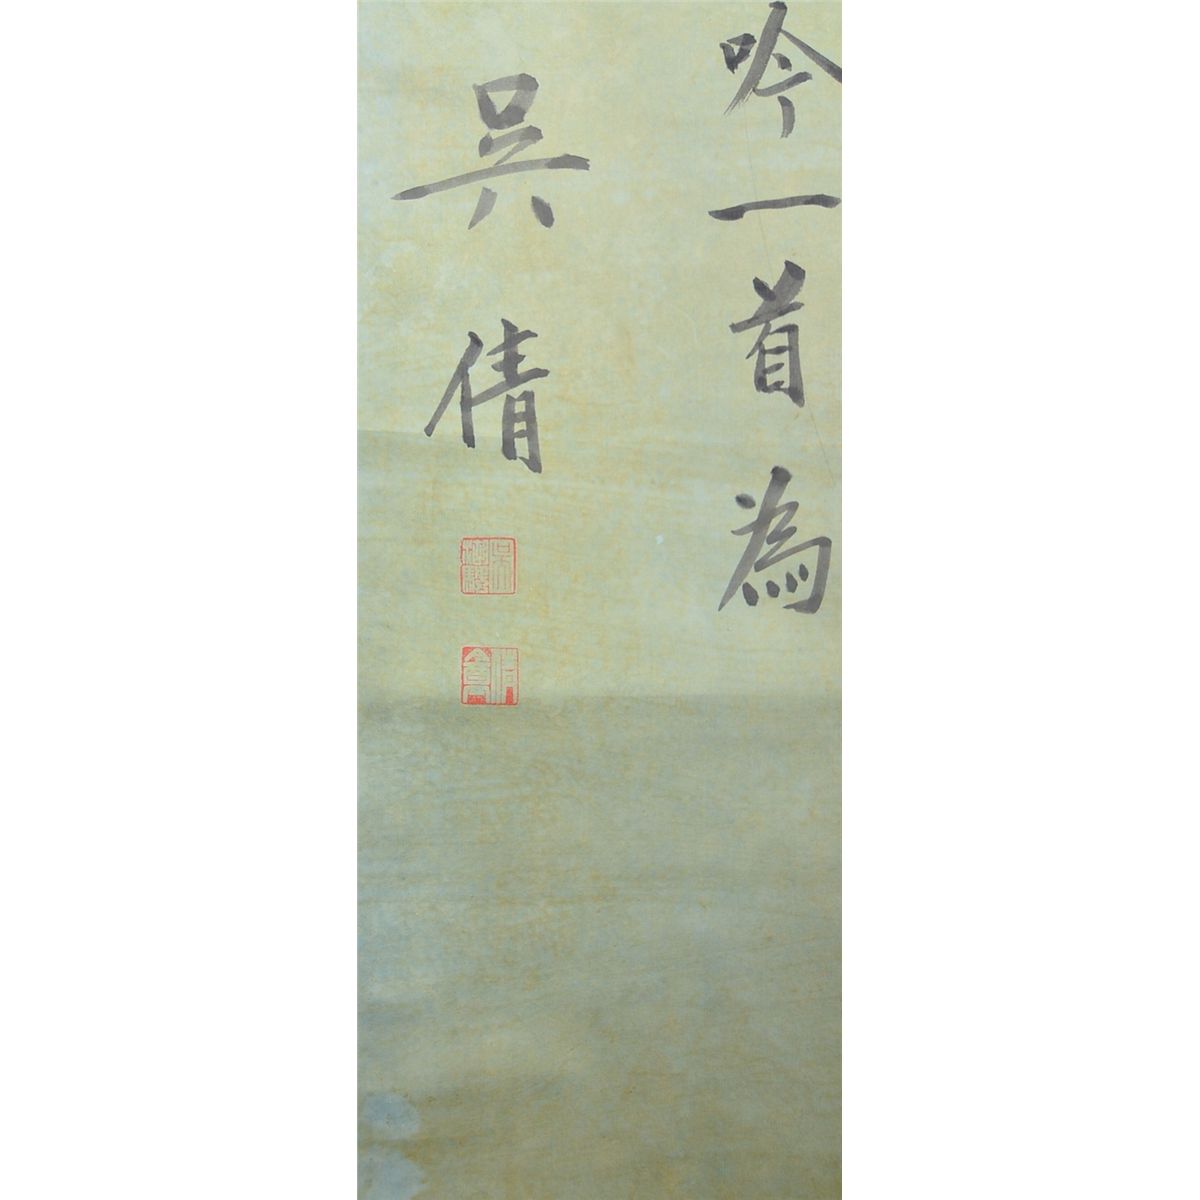 吟一首為
吳倩